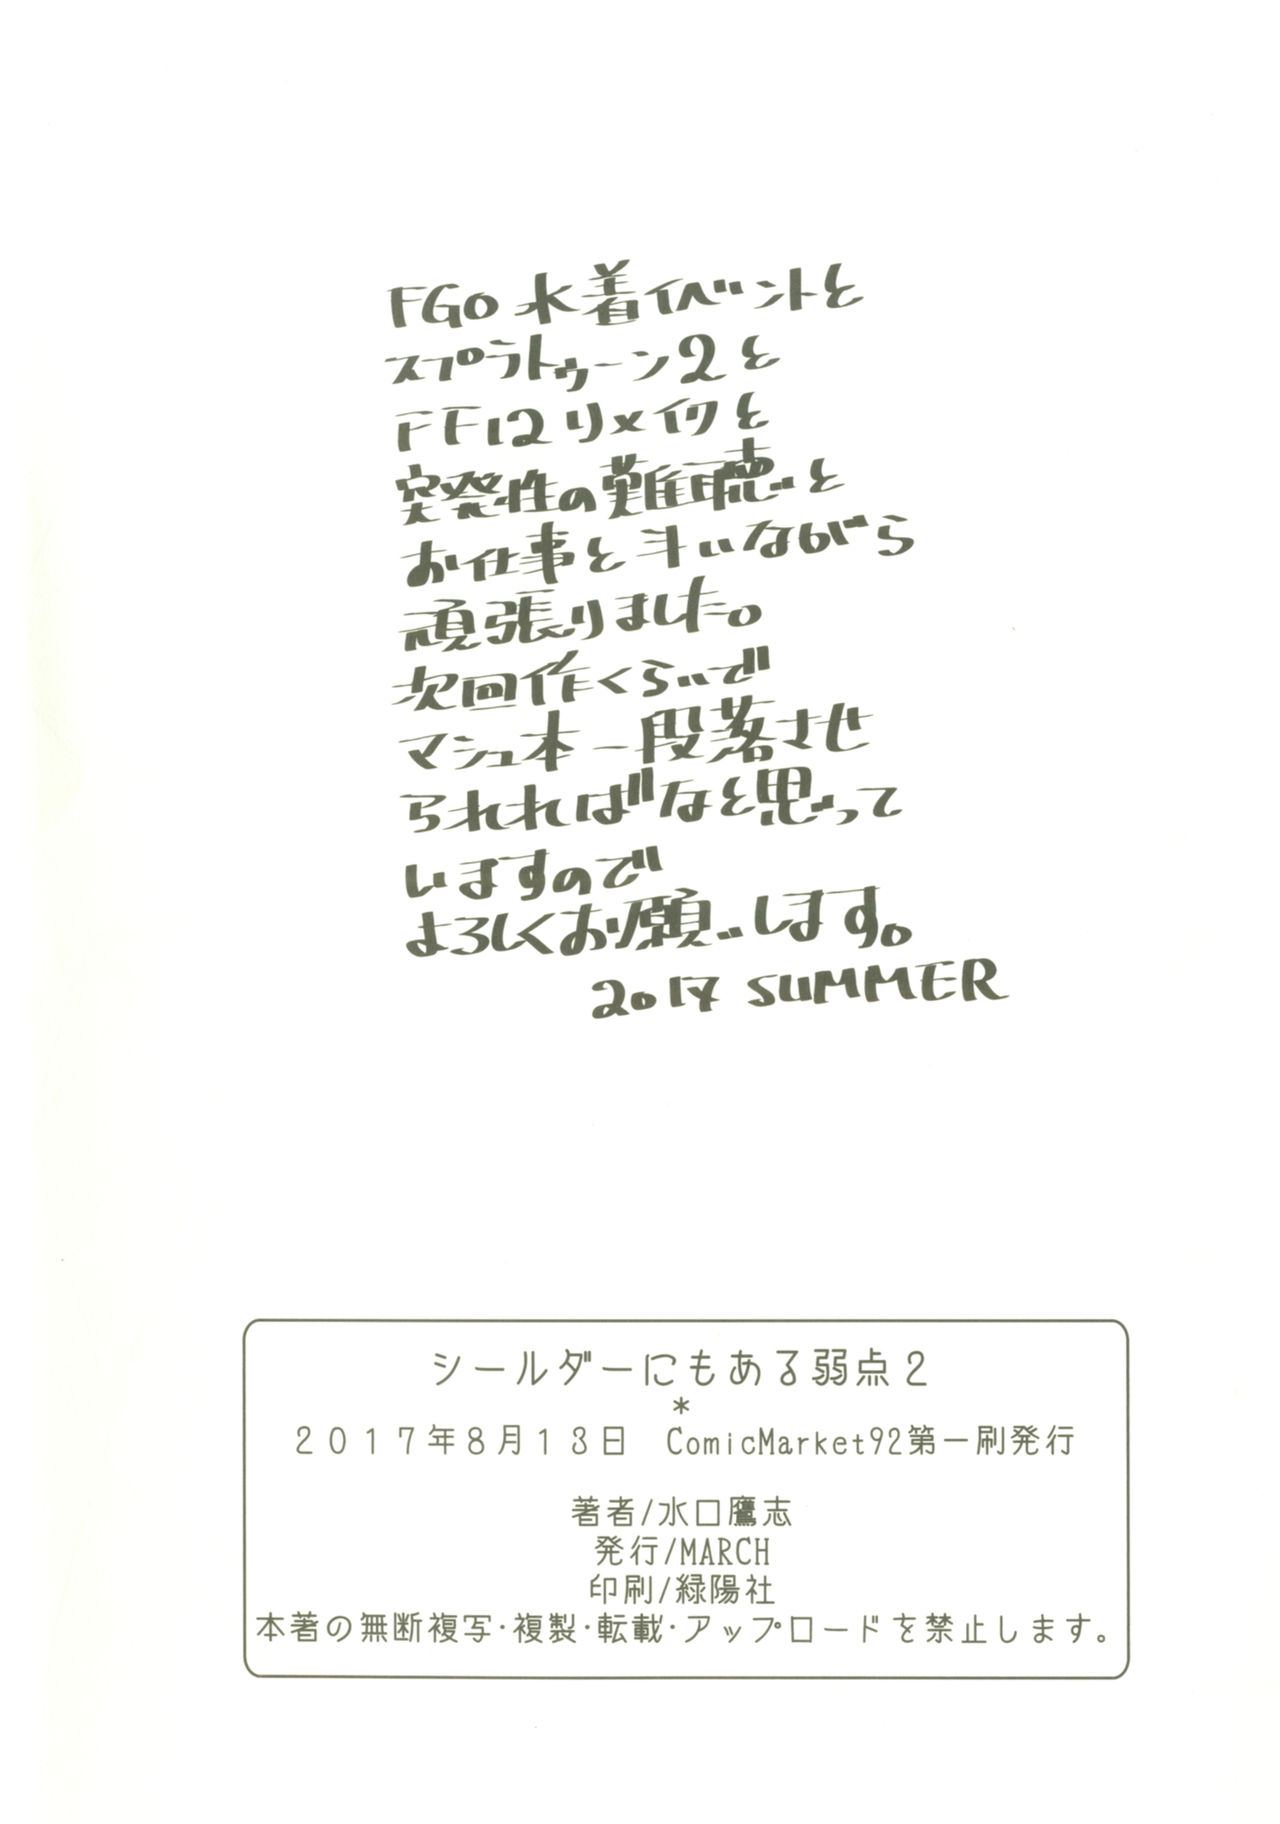 FGO 水着イベントと
スプラトゥーン2と
FF12リメイクと
突発性の難聴と
お仕事と斗いながら
頑張りました。
次回作くらいで
マシュ本一段落させ
られればなと思って
いますので
よろしくお願いします。
2017 SUMMER
シールダーにもある弱点2
*
2017年8月13日　ComicMarket92第一刷発行
著者/水口鷹志
発行/MARCH
印刷/緑陽社
本著の無断複写・複製・転載・アップロードを禁止します。